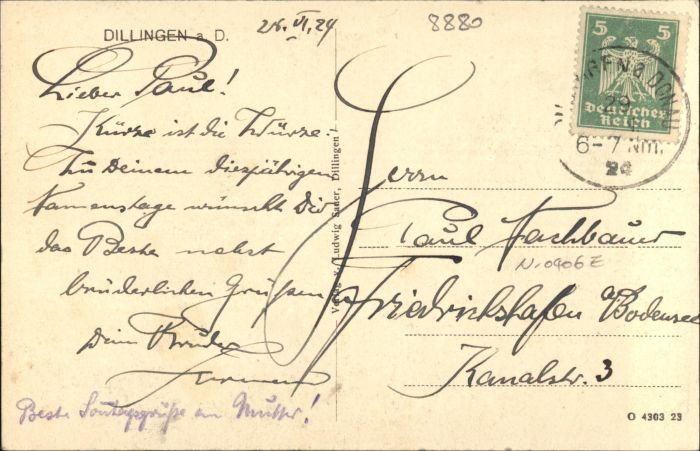 DILLINGEN a. D.
26. VI. 24
8880
Lieber Paul!
Kürze ist die Würze.
Zu Deinem diesjährigen
Namenstage wünscht Dir
das Beste nebst
brüderlichen Grüßen
Dein Bruder
Beste Sonntagsgrüße an Mutter!
Verlag v. Ludwig Sauer, Dillingen
5 5
Deutsches
Reich
DONAU
29
6-7 Nm.
24
Herrn
Paul Fachbauer
N-0406E
Friedrichshafen a/Bodensee
Kanalstr. 3
O 4303 23